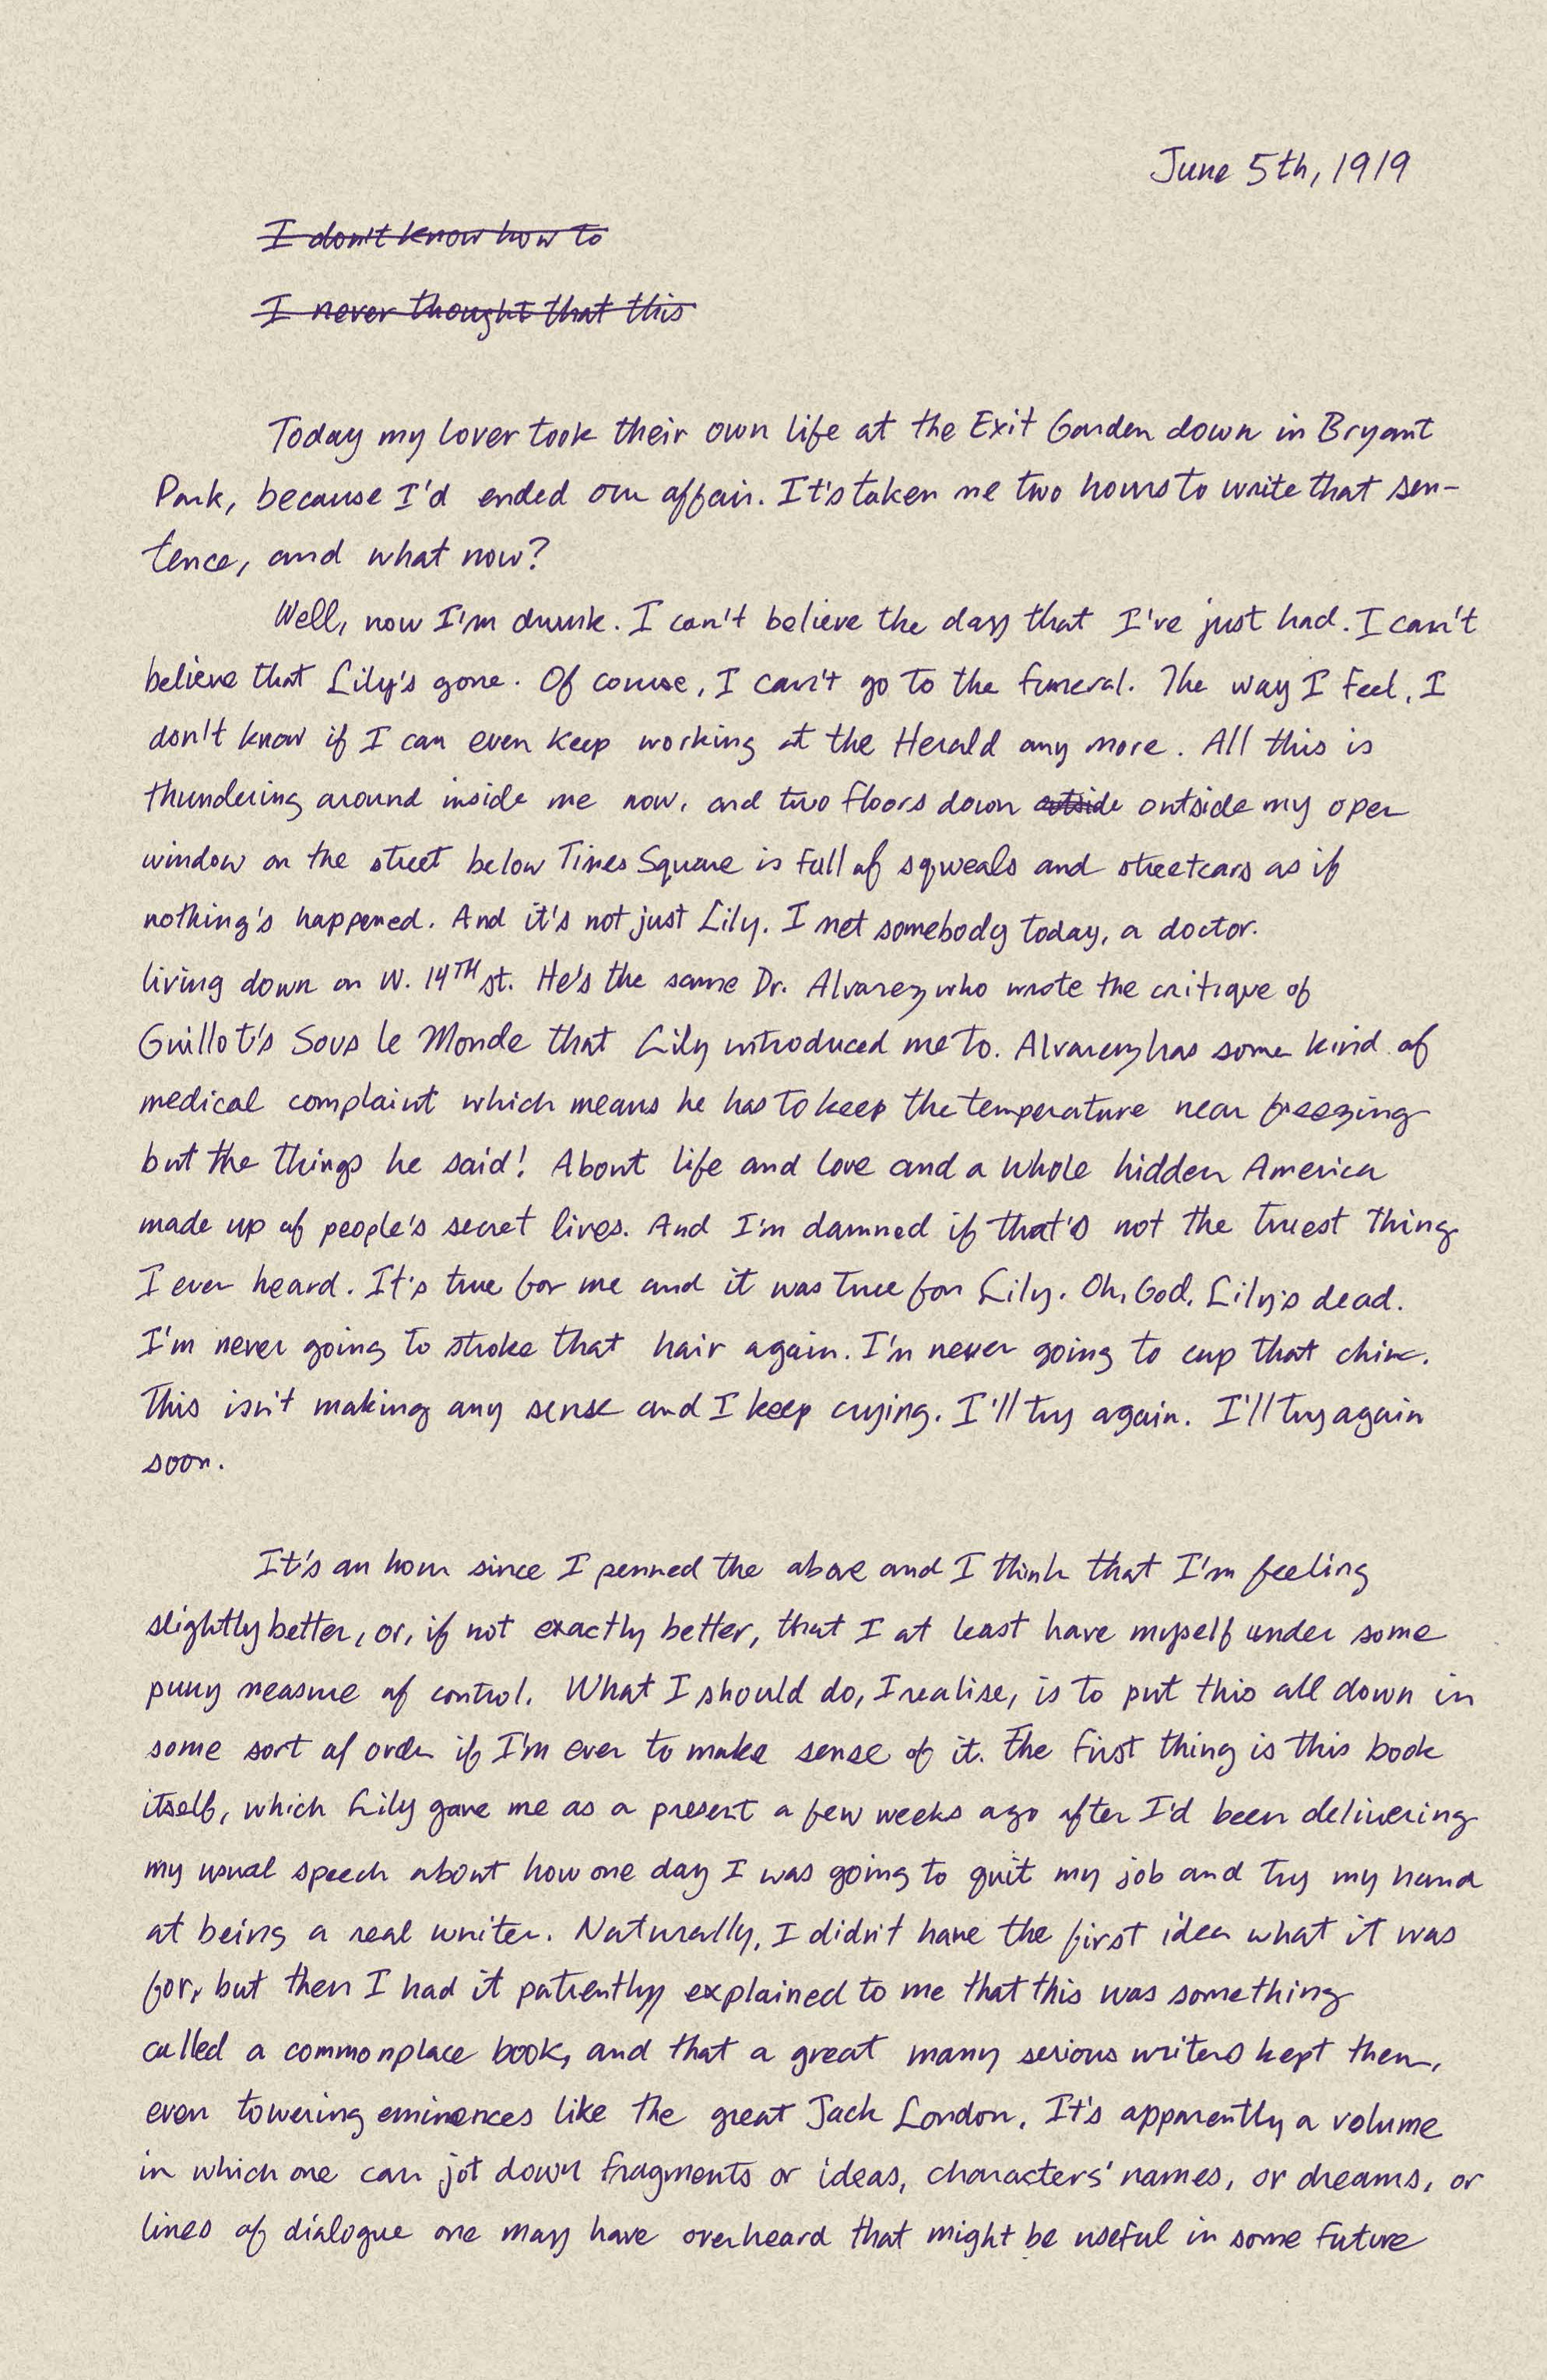 June 5th, 1919
I don't know how to
I never thought that this
Today my lover took their own life at the Exit Garden down in Bryant
Park, because I'd ended our affair. It's taken me two hours to write that sen-
tence, and what now?
Well, now I'm drunk. I can't believe the day that I've just had. I can't
believe that Lily's gone. Of course, I can't go to the funeral. The way I feel, I
don't know if I can even keep working at the Herald any more. All this is
thundering around inside me now, and two floors down outside outside my open
window on the street below Times Square is full of squeals and streetcars as if
nothing's happened. And it's not just Lily. I met somebody today, a doctor.
living down on W. 14TH st. He's the same Dr. Alvarez who wrote the critique of
Guillot's Sous le Monde that Lily introduced me to. Alvarez has some kind of
medical complaint which means he has to keep the temperature near freezing
but the things he said! About life and love and a whole hidden America
made up of people's secret lives. And I'm damned if that's not the truest thing
I ever heard. It's true for me and it was true for Lily. Oh, God, Lily's dead.
I'm never going to stroke that hair again. I'm never going to cup that chin.
This isn't making any sense and I keep crying. I'll try again. I'll try again
soon.
It's an hour since I penned the above and I think that I'm feeling
slightly better, or, if not exactly better, that I at least have myself under some
puny measure of control. What I should do, I realise, is to put this all down in
some sort of order if I'm ever to make sense of it. The first thing is this book
itself, which Lily gave me as a present a few weeks ago after I'd been delivering
my usual speech about how one day I was going to quit my job and try my hand
at being a real writer. Naturally, I didn't have the first idea what it was
for, but then I had it patiently explained to me that this was something
called a commonplace book, and that a great many serious writers kept them,
even towering eminences like the great Jack London. It's apparently a volume
in which one can jot down fragments or ideas, characters' names, or dreams, or
lines of dialogue one may have overheard that might be useful in some future